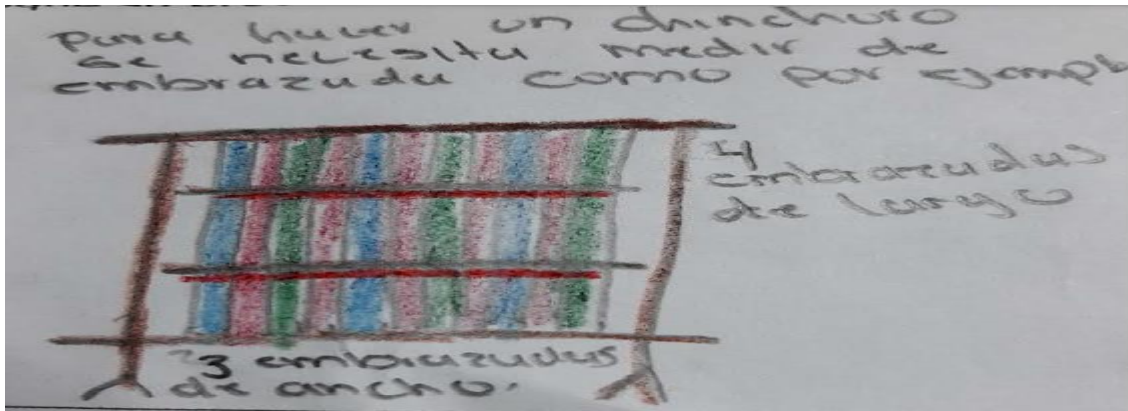 Para hacer un chinchoro
se necesita medir de
embrazada como por ejemplo
4
embrazadas
de largo
3 embrazadas
de ancho.